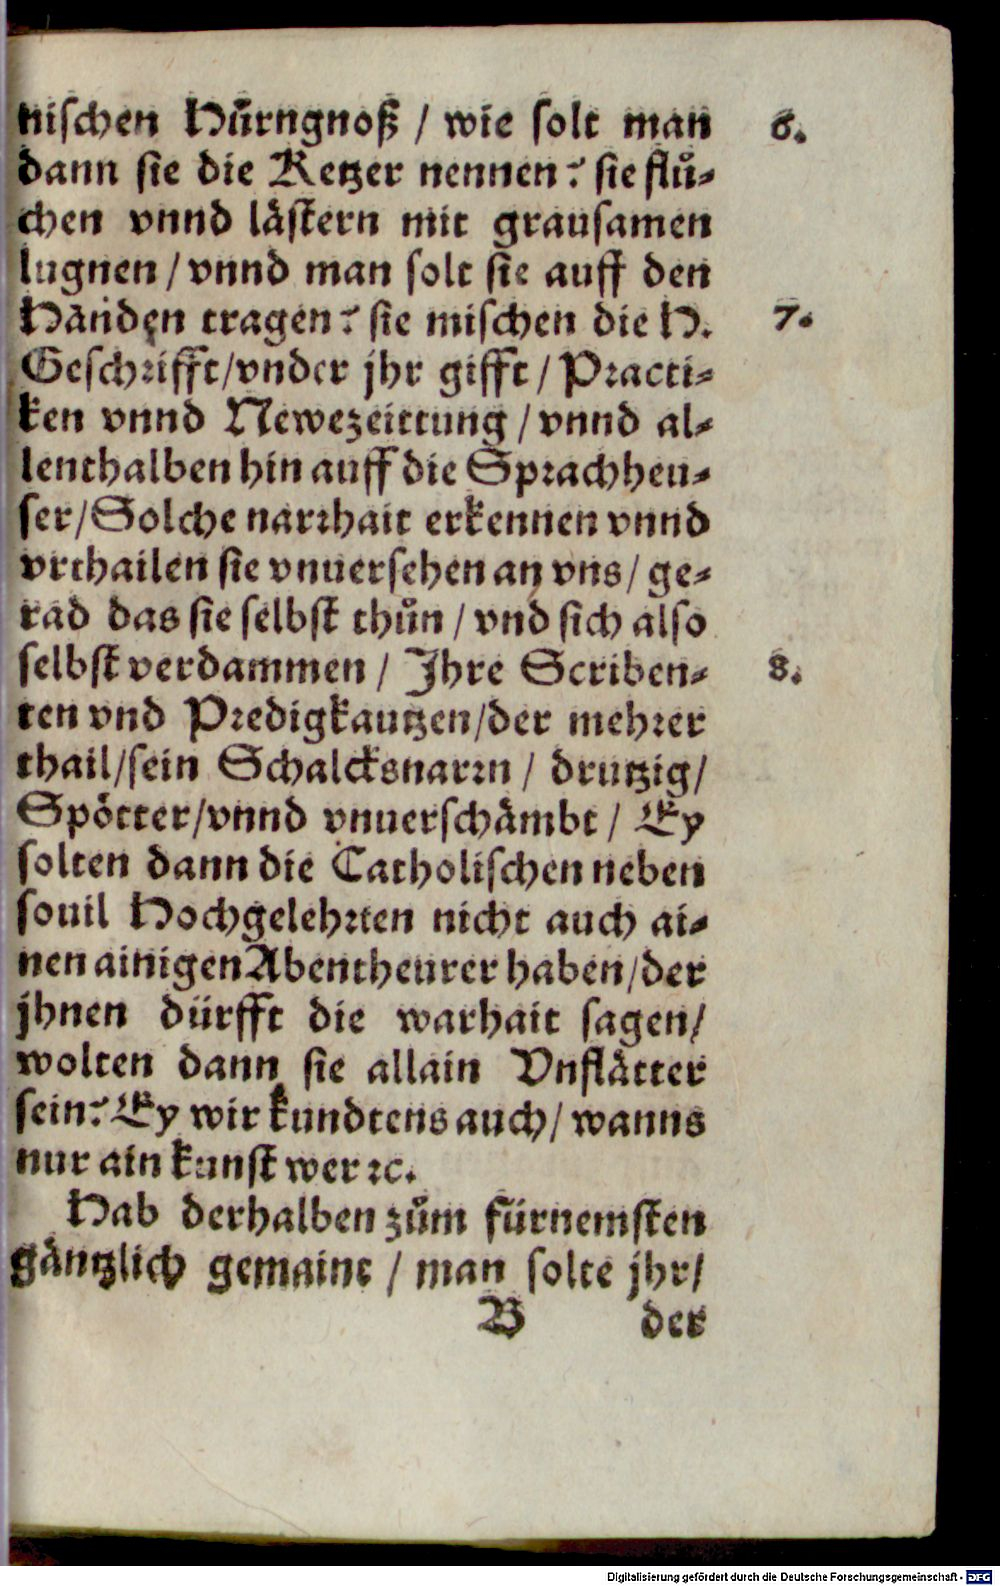 nischen Hůrngnoß / wie solt man 6.
dann sie die Ketzer nennen? sie flů⸗
chen vnnd lästern mit grausamen
lugnen / vnnd man solt sie auff den
Händen tragen? sie mischen die H. 7.
Geschrifft/vnder jhr gifft / Practi⸗
ken vnnd Newezeittung / vnnd al⸗
lenthalben hin auff die Sprachheu⸗
ser/Solche narrhait erkennen vnnd
vrthailen sie vnuersehen an vns/ ge⸗
rad das sie selbst thůn / vnd sich also
selbst verdammen / Jhre Scriben⸗ 8.
ten vnd Predigkautzen/der mehrer
thail/sein Schalcksnarrn / drutzig/
Spötter/vnnd vnuerschämbt / Ey
solten dann die Catholischen neben
souil Hochgelehrten nicht auch ai⸗
nen ainigen Abentheurer haben/der
jhnen dürfft die warhait sagen/
wolten dann sie allain Vnflätter
sein? Ey wir kundtens auch/ wanns
nur ain kunst wer ꝛc.
Hab derhalben zům fürnemsten
gäntzlich gemaint / man solte jhr/
B der
Digitalisierung gefördert durch die Deutsche Forschungsgemeinschaft - DFG